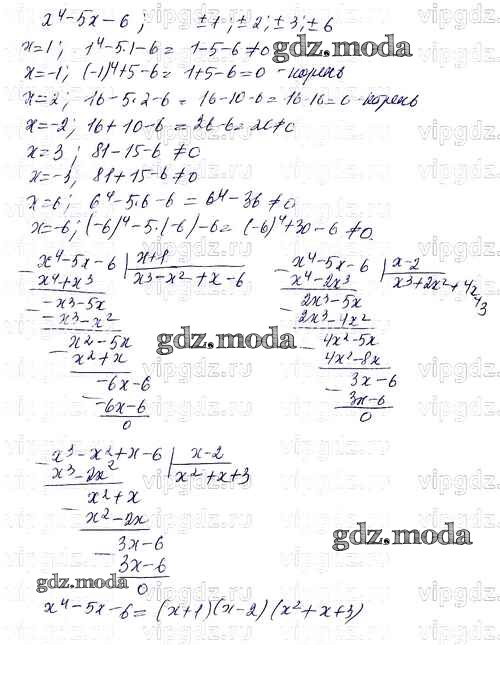 x⁴-5x-6; ±1; ±2; ±3; ±6
x=1; 1⁴-5·1-6= 1-5-6≠0
x=-1; (-1)⁴+5-6= 1+5-6=0 - корень
x=2; 16-5·2-6 = 16-10-6=16-16=0 - корень
x=-2; 16+10-6 = 26-6=20≠0
x=3; 81-15-6≠0
x=-3; 81+15-6≠0
x=6; 6⁴-5·6-6 = 6⁴-36≠0
x=-6; (-6)⁴-5·(-6)-6= (-6)⁴+30-6≠0
x⁴-5x-6 | x+1
x⁴+x³ | x³-x²+x-6
-x³-5x
-x³-x²
x²-5x
x²+x
-6x-6
-6x-6
0
x⁴-5x-6 | x-2
x⁴-2x³ | x³+2x²+4x+3
2x³-5x
2x³-4x²
4x²-5x
4x²-8x
3x-6
3x-6
0
gdz.moda
gdz.moda
x³-x²+x-6 | x-2
x³-2x² | x²+x+3
x²+x
x²-2x
3x-6
3x-6
0
gdz.moda
gdz.moda
x⁴-5x-6= (x+1)(x-2)(x²+x+3)